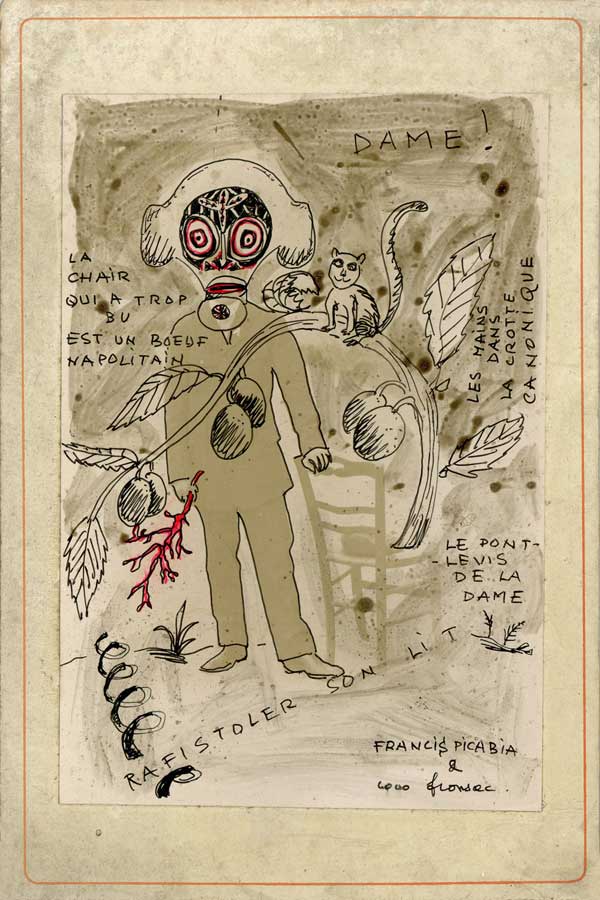 DAME!
LA
CHAIR
QUI A TROP
BU
EST UN BŒUF
NAPOLITAIN
LES MAINS
DANS
LA CROTTE
CANONIQUE
LE PONT-
-LEVIS
DE LA
DAME
RAFISTOLER SON LIT
FRANCIS PICABIA
&
fronsac.